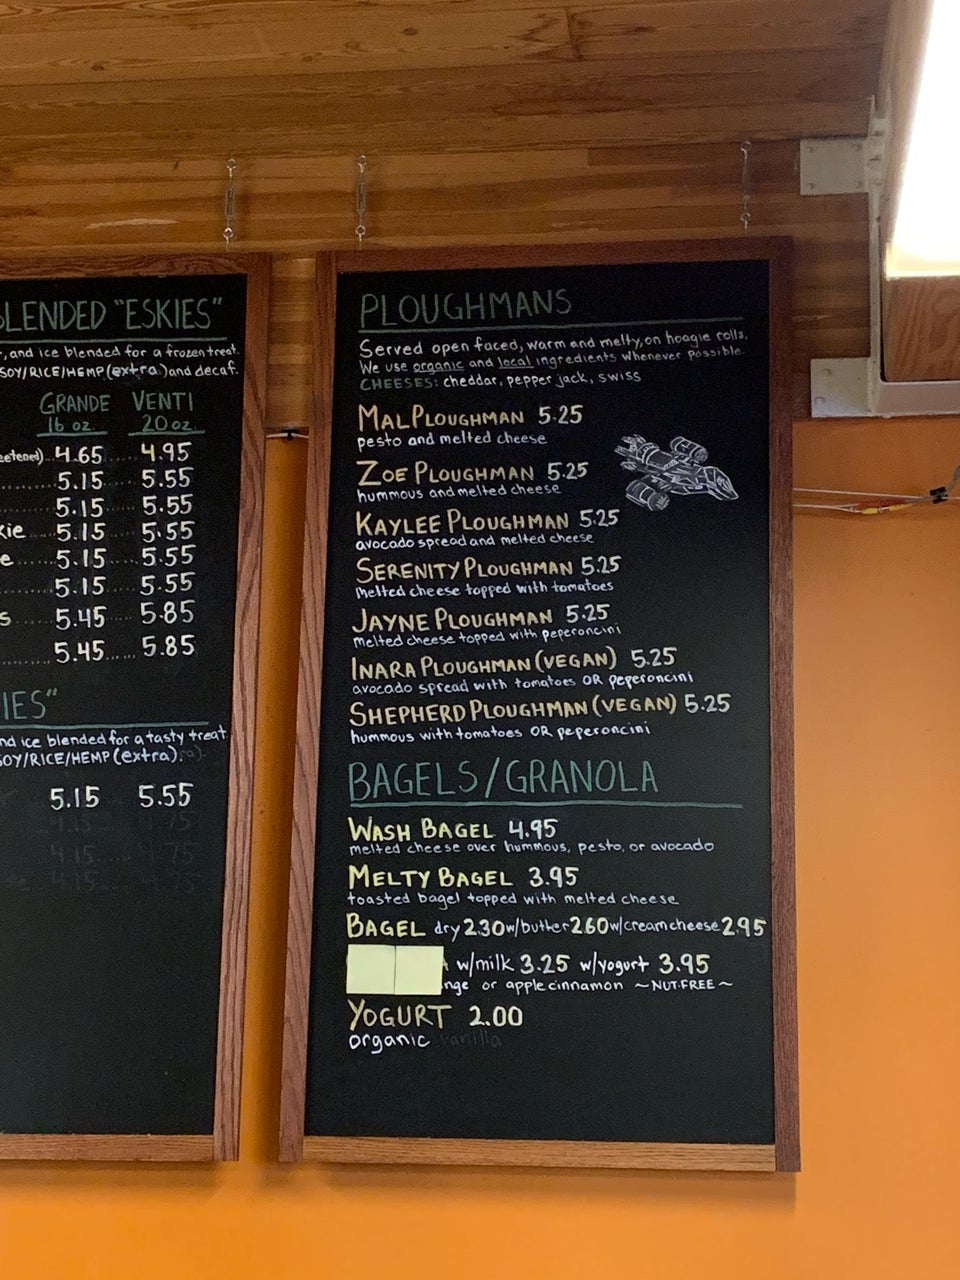 BLENDED "ESKIES"
, and ice blended for a frozen treat.
SOY/RICE/HEMP (extra) and decaf.
GRANDE VENTI
16 oz. 20 oz.
eetened) 4.65 4.95
5.15 5.55
5.15 5.55
kie 5.15 5.55
e 5.15 5.55
5.15 5.55
s 5.45 5.85
5.45 5.85
IES"
nd ice blended for a tasty treat.
SOY/RICE/HEMP (extra).
5.15 5.55
4.15 4.75
4.15 4.75
PLOUGHMANS
Served open faced, warm and melty, on hoagie rolls.
We use organic and local ingredients whenever possible.
CHEESES: cheddar, pepper jack, swiss
MAL PLOUGHMAN 5.25
pesto and melted cheese
ZOE PLOUGHMAN 5.25
hummous and melted cheese
KAYLEE PLOUGHMAN 5.25
avocado spread and melted cheese
SERENITY PLOUGHMAN 5.25
melted cheese topped with tomatoes
JAYNE PLOUGHMAN 5.25
melted cheese topped with peperoncini
INARA PLOUGHMAN (VEGAN) 5.25
avocado spread with tomatoes OR peperoncini
SHEPHERD PLOUGHMAN (VEGAN) 5.25
hummous with tomatoes OR peperoncini
BAGELS/GRANOLA
WASH BAGEL 4.95
melted cheese over hummous, pesto, or avocado
MELTY BAGEL 3.95
toasted bagel topped with melted cheese
BAGEL dry 2.30 w/butter 2.60 w/cream cheese 2.95
w/milk 3.25 w/yogurt 3.95
nge or apple cinnamon ~NUT-FREE~
YOGURT 2.00
organic vanilla